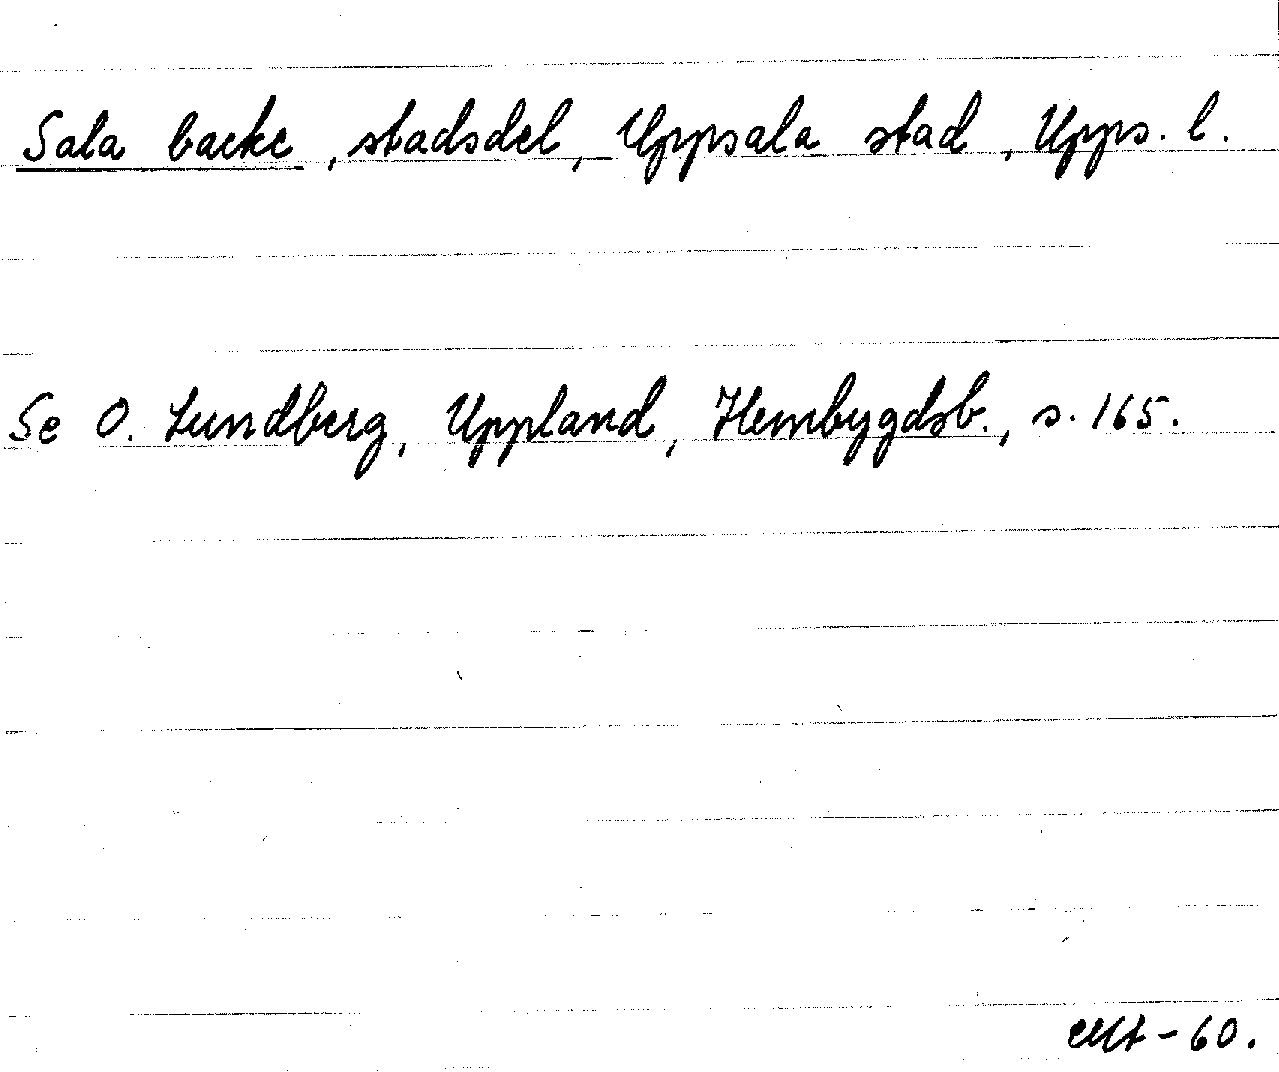 Sala backe, stadsdel, Uppsala stad, Upps. l.
Se O. Lundberg, Uppland, Hembygdsb., s. 165.
-60.